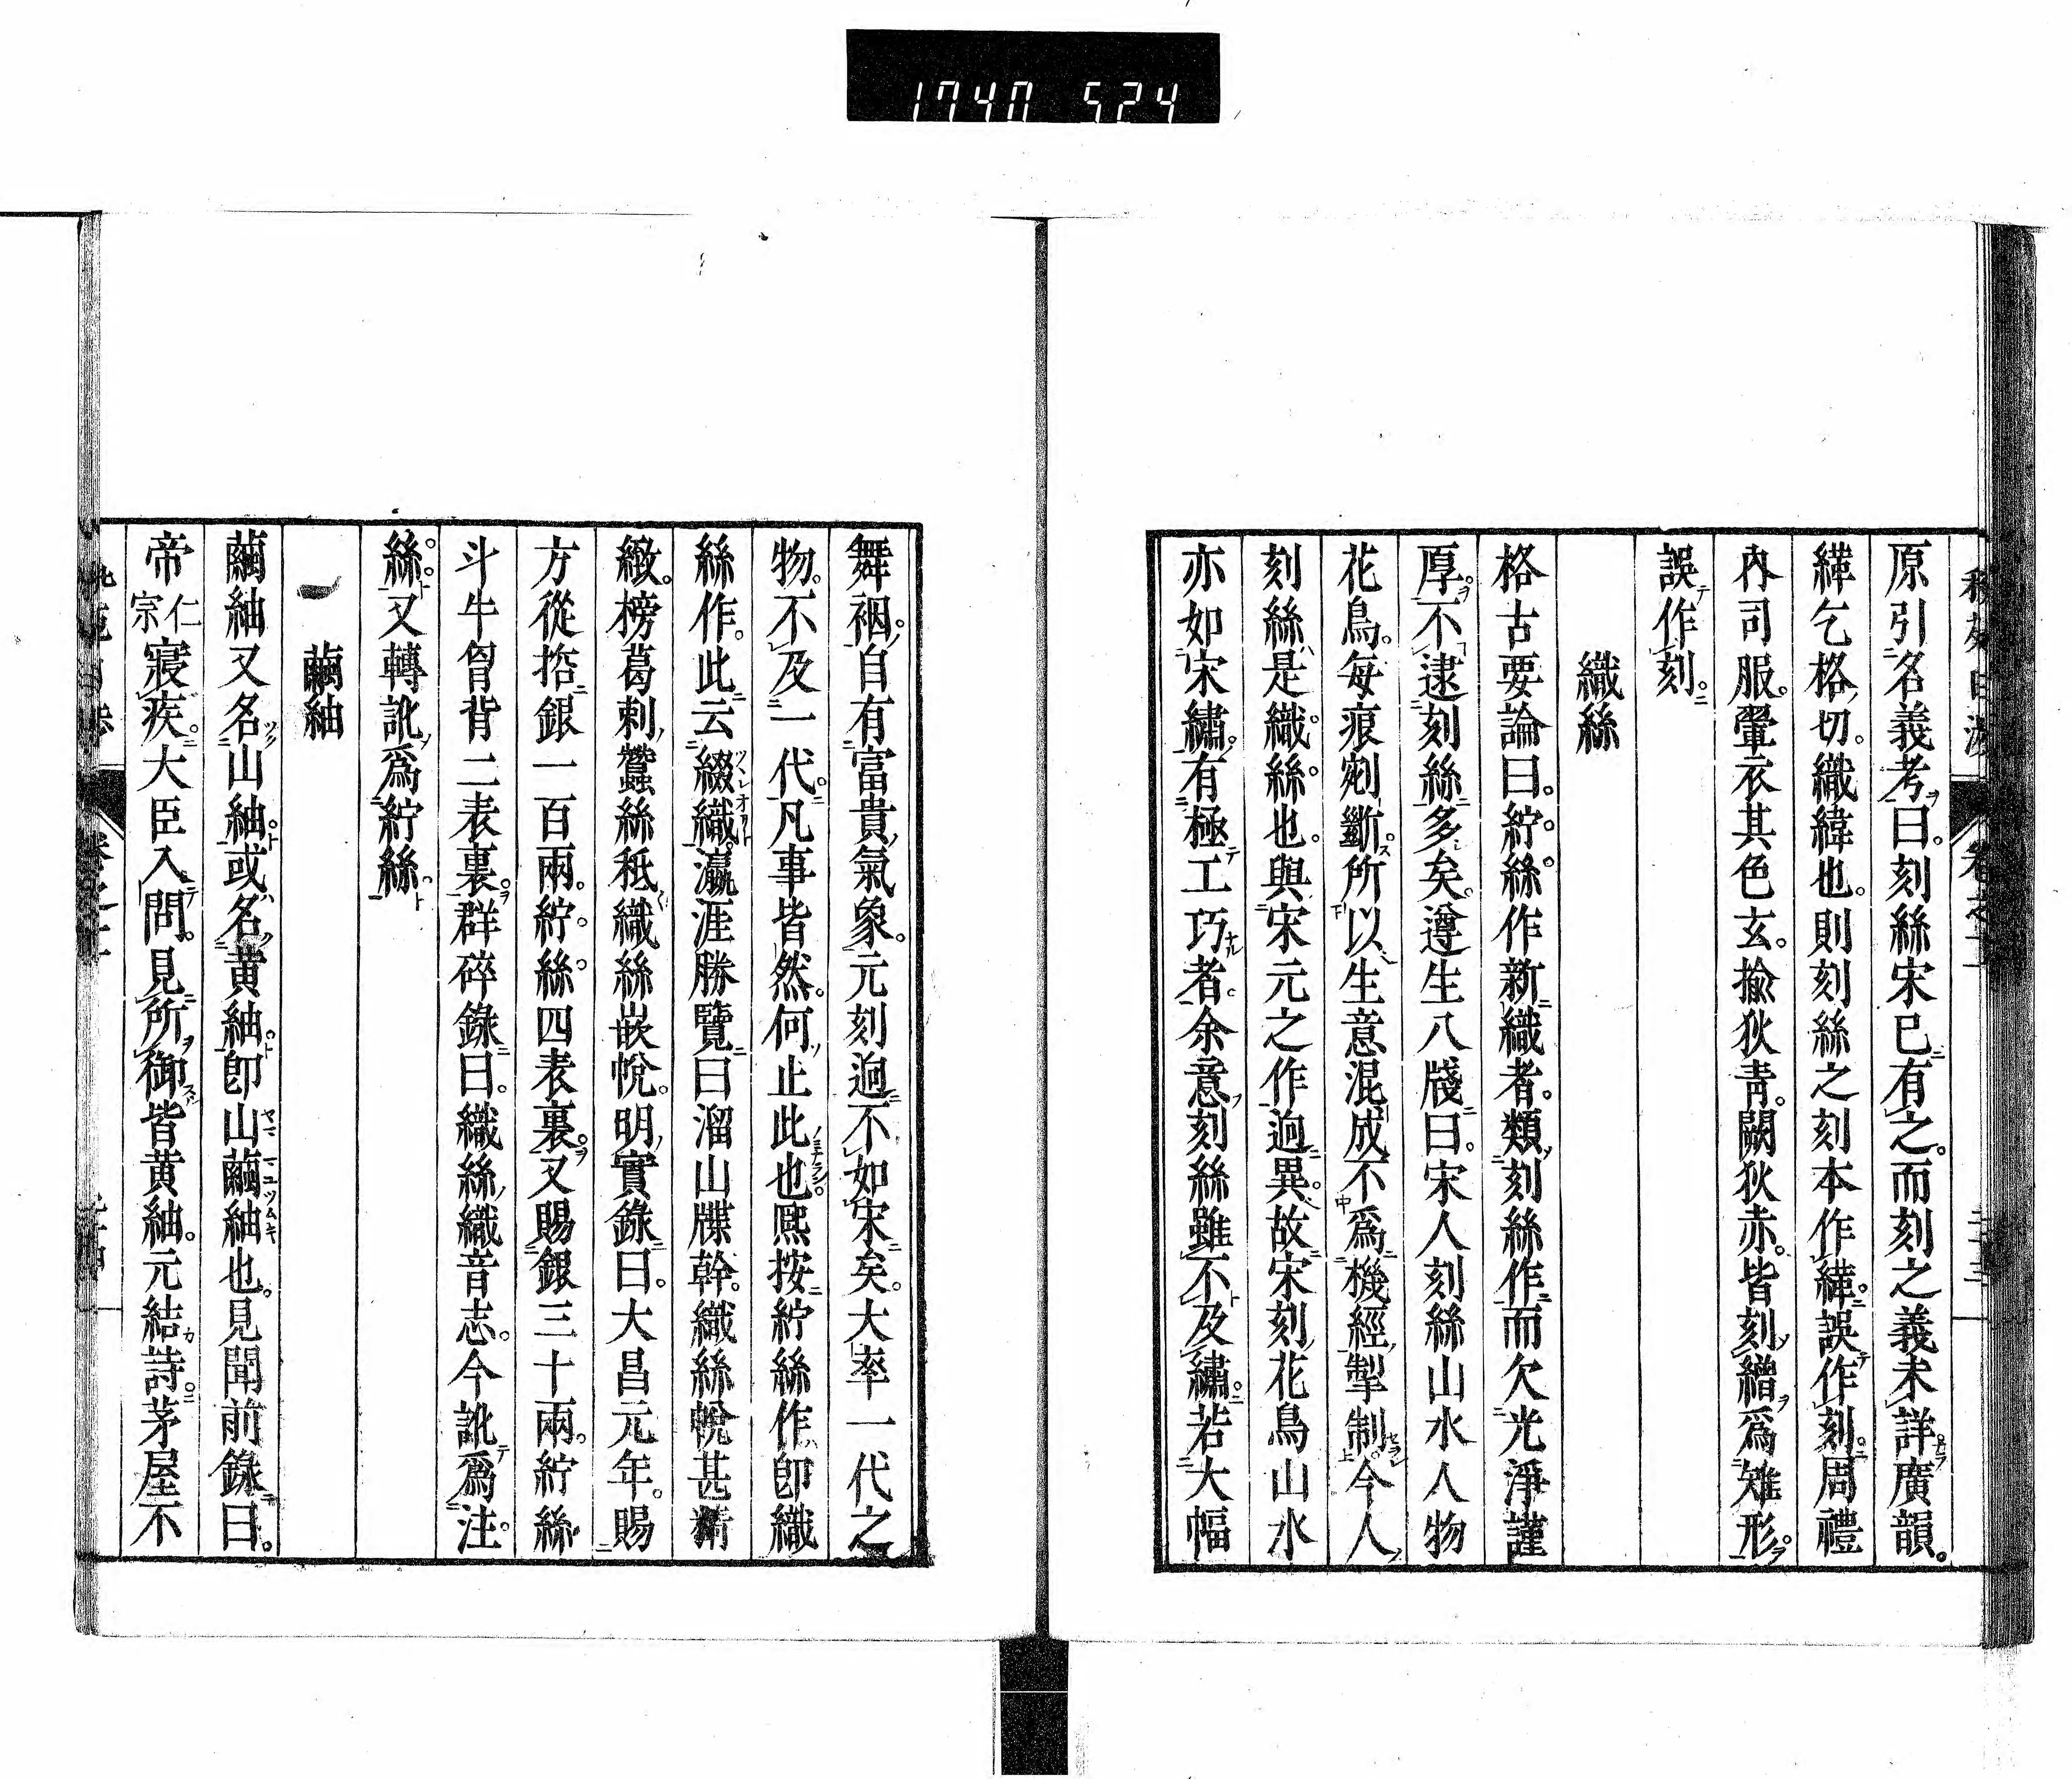 1740 524
原引名義考曰刻絲宋已有之而刻之義未詳廣韻
緙乞格切織緯也則刻絲之刻本作緙誤作刻周禮
內司服翬衣其色玄揄狄青闕狄赤皆刻繒爲雉形
誤作刻
織絲
格古要論曰紵絲作新織者類刻絲作而欠光淨謹
厚不逮刻絲多矣遵生八牋曰宋人刻絲山水人物
花鳥每痕剜斷所以生意混成不爲機經掣制今人
刻絲是織絲也與宋元之作逈異故宋刻花鳥山水
亦如宋繡有極工巧者余意刻絲雖不及繡若大幅
舞裀自有富貴氣象元刻逈不如宋矣大率一代之
物不及一代凡事皆然何止此也熈按紵絲作卽織
絲作此云綴織瀛涯勝覽曰溜山牒幹織絲帨甚精
緻榜葛剌蠶絲秪織絲嵌帨明實錄曰大昌元年賜
方從哲銀一百兩紵絲四表裏又賜銀三十兩紵絲
斗牛胷背二表裏群碎錄曰織絲織音志今訛爲注
絲又轉訛爲紵絲
繭紬
繭紬又名山紬或名黄紬卽山繭紬也見聞前錄曰
帝仁宗寢疾大臣入問見所御皆黄紬元結詩茅屋不